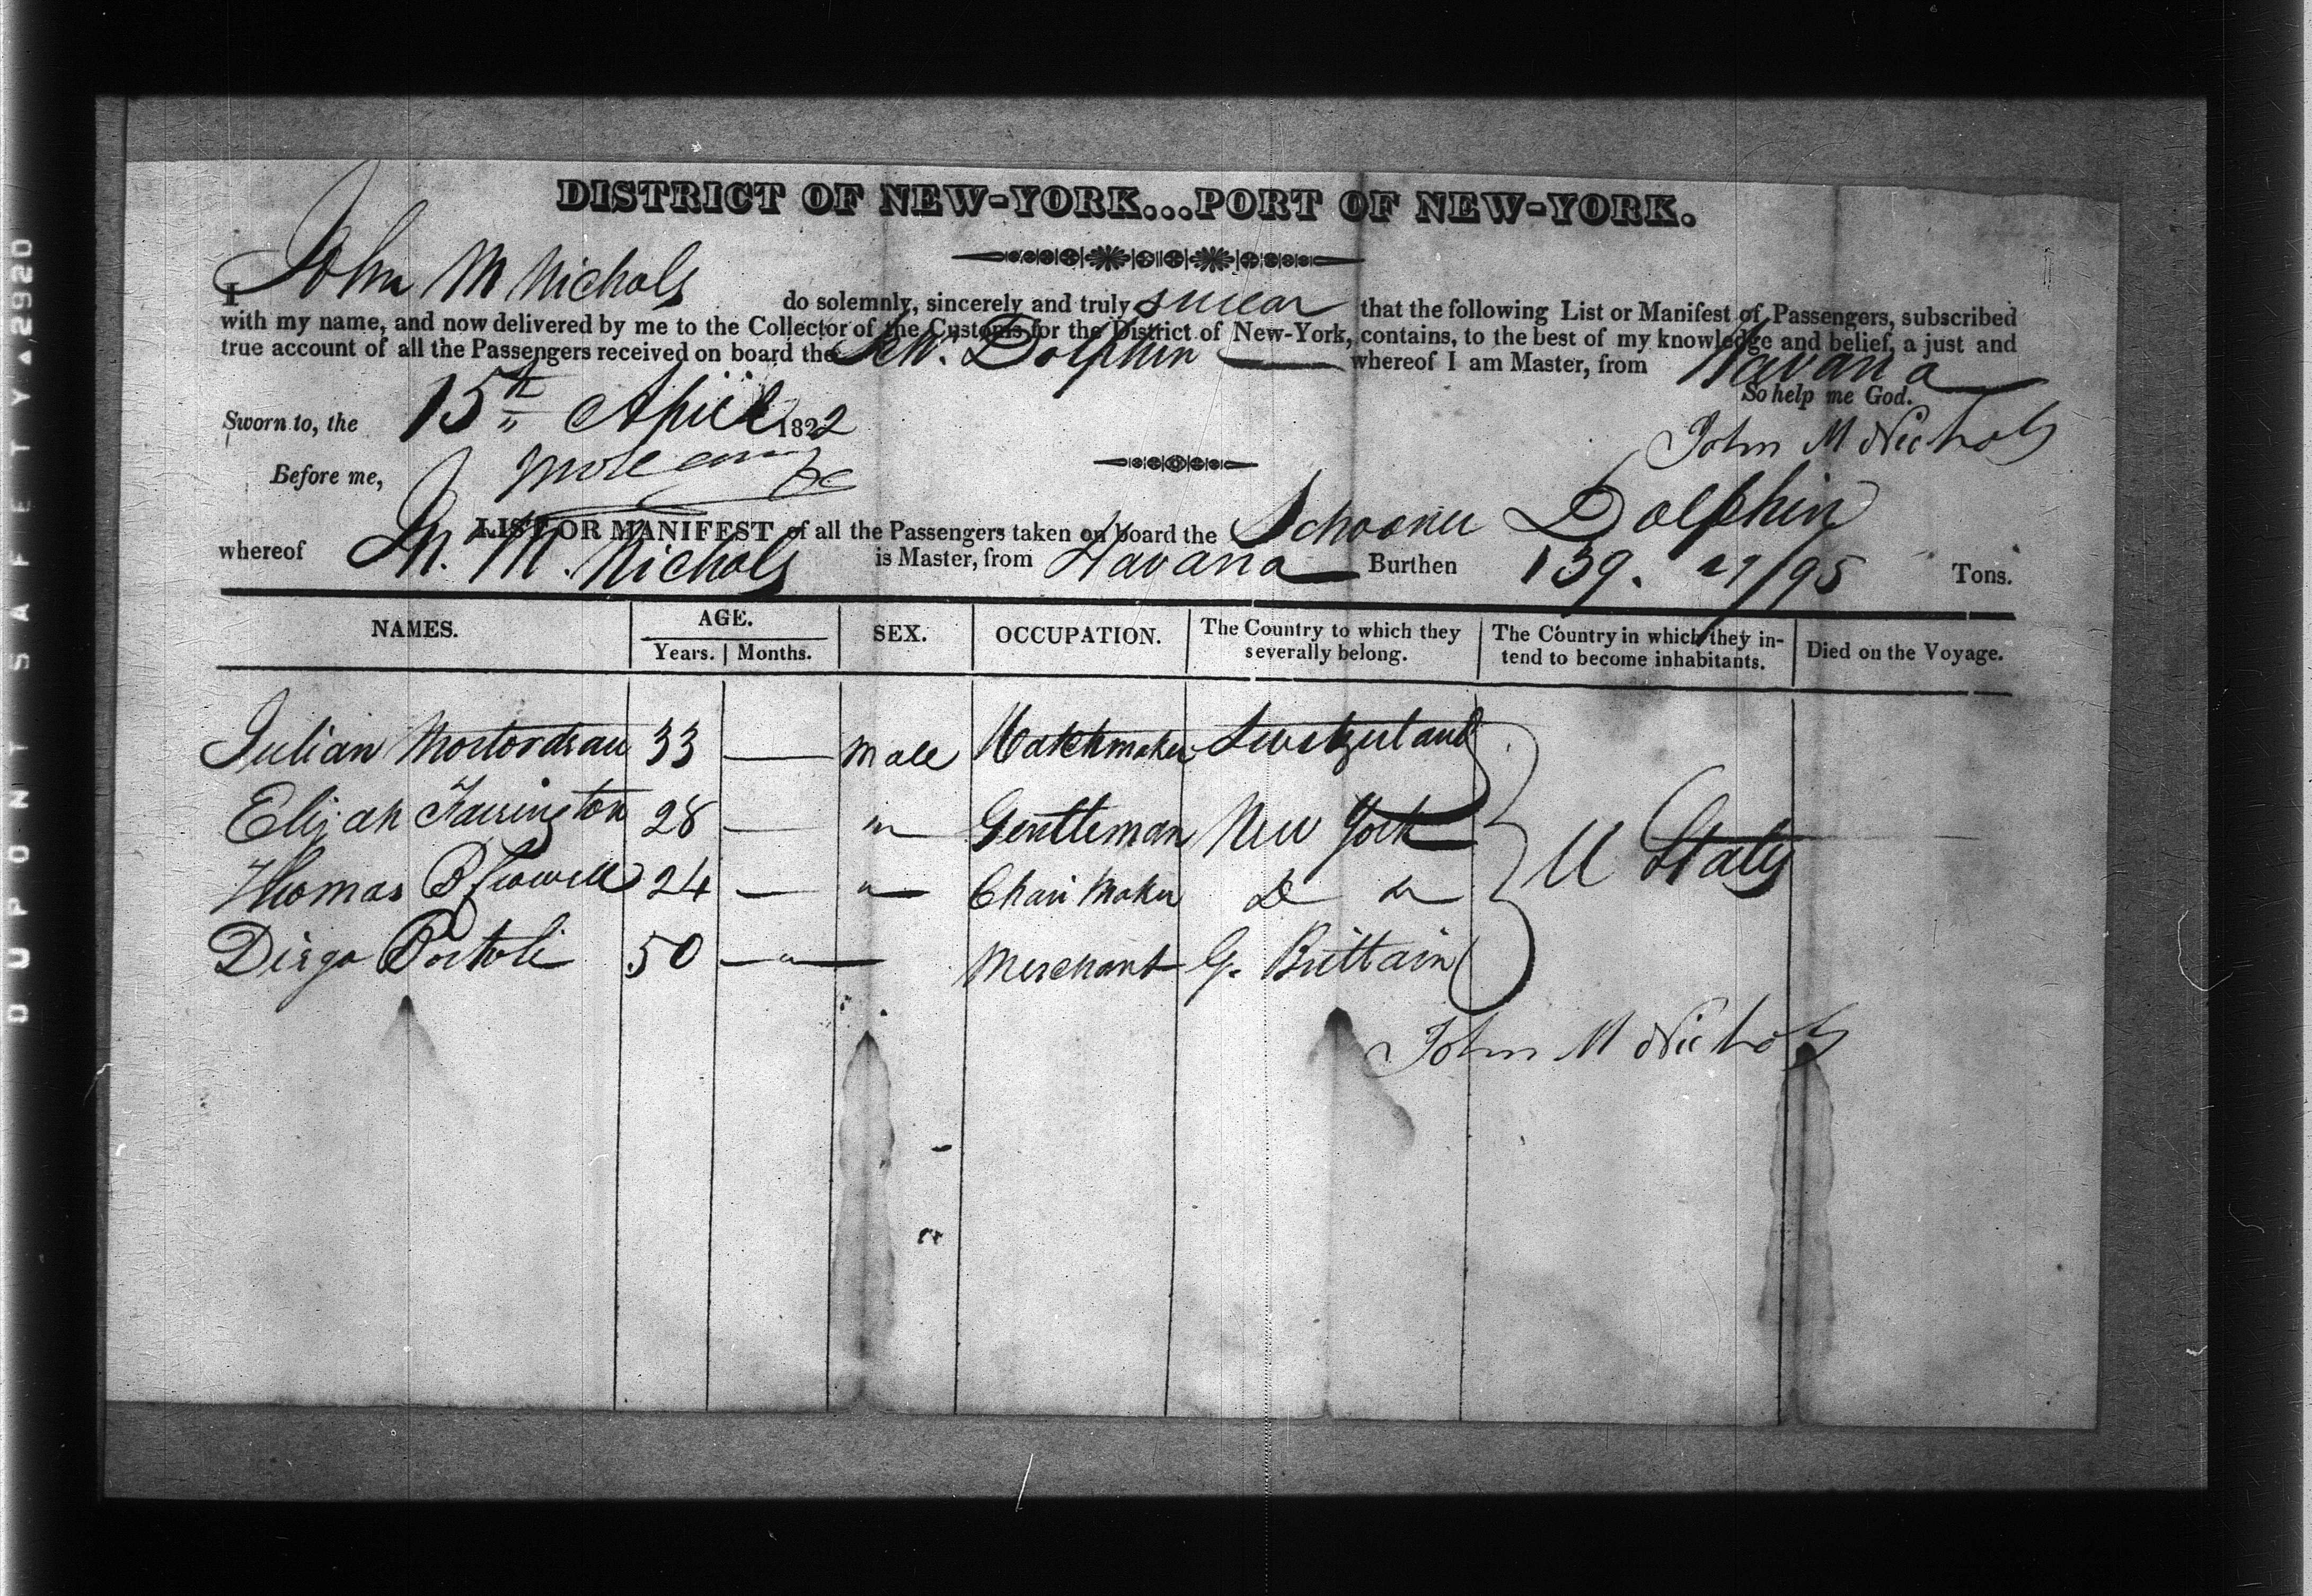 DISTRICT OF NEW-YORK...PORT OF NEW-YORK.
I John M Nichols do solemnly, sincerely and truly swear that the following List or Manifest of Passengers, subscribed
with my name, and now delivered by me to the Collector of the Customs for the District of New-York, contains, to the best of my knowledge and belief, a just and
true account of all the Passengers received on board the Schr. Dolphin whereof I am Master, from Havana
So help me God.
Sworn to, the 15th April 1822
John M Nichols
Before me,
LIST OR MANIFEST of all the Passengers taken on board the Schooner Dolphin
whereof Jn. M. Nichols is Master, from Havana Burthen 139. 27/95 Tons.
NAMES. AGE. SEX. OCCUPATION. The Country to which they severally belong. The Country in which they in-tend to become inhabitants. Died on the Voyage.
Years. Months.
Julian 33 — Male Watchmaker Switzerland
Elijah Farrington 28 — " Gentleman New York
Thomas B 24 — " Chair Maker Do Do
U States
Diego Bortoli 50 — " — Merchant G. Brittain
John M Nichols
DUPONT SAFETY 2920